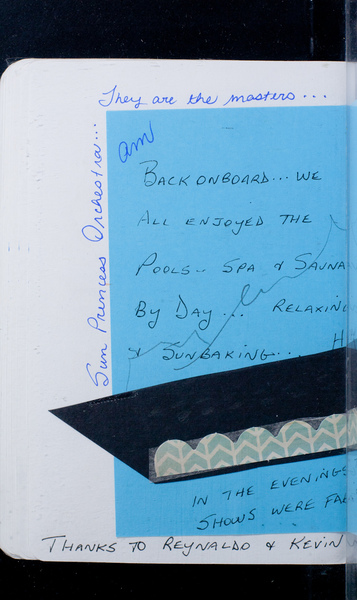 They are the masters...
Sun Princess Orchestra...
am
BACK ONBOARD... WE
ALL ENJOYED THE
POOLS.. SPA & SAUNA
BY DAY... RELAXING
& SUNBAKING... H
IN THE EVENINGS
SHOWS WERE
THANKS TO REYNALDO & KEVIN